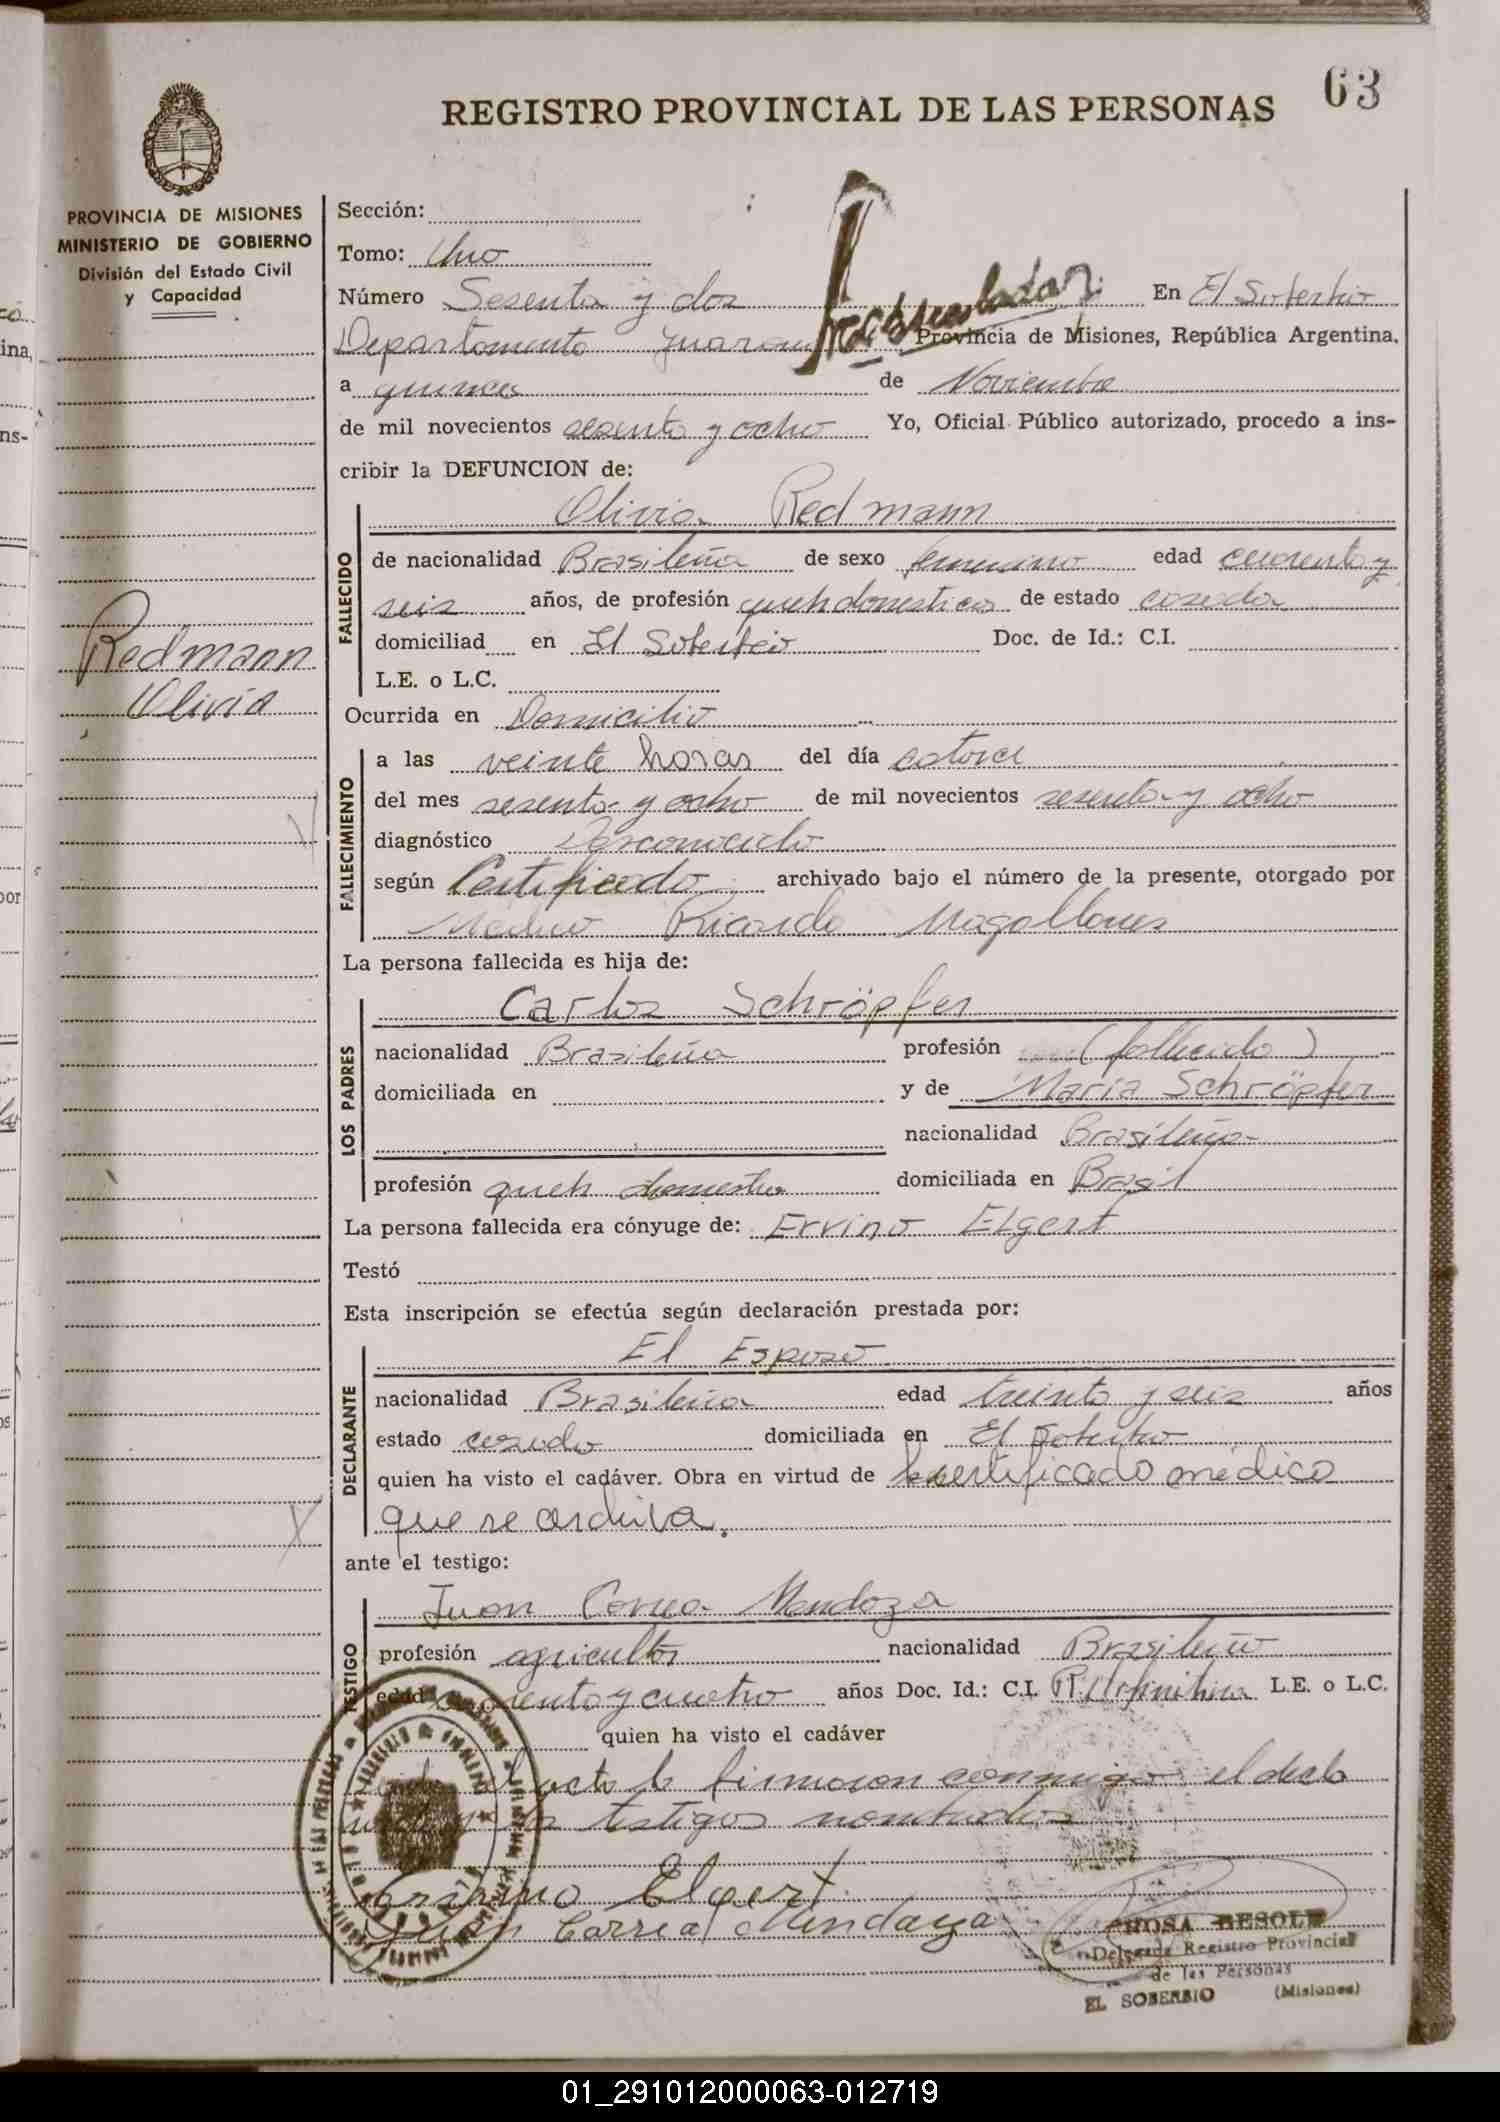 63
REGISTRO PROVINCIAL DE LAS PERSONAS
PROVINCIA DE MISIONES
MINISTERIO DE GOBIERNO
División del Estado Civil
y Capacidad
Redmann
Olivia
Sección:
Tomo: Uno
Número Sesenta y dos En El Soberbio
Departamento Provincia de Misiones, República Argentina,
a quince de Noviembre
de mil novecientos sesenta y ocho Yo, Oficial Público autorizado, procedo a ins-
cribir la DEFUNCION de:
Olivia Redmann
FALLECIDO
de nacionalidad Brasileña de sexo femenino edad cuarenta y
seis años, de profesión queh domesticos de estado casada
domiciliad en El Soberbio Doc. de Id.: C.I.
L.E. o L.C.
Ocurrida en Domicilio
FALLECIMIENTO
a las veinte horas del día catorce
del mes sesenta y ocho de mil novecientos sesenta y ocho
diagnóstico Desconocido
según Certificado archivado bajo el número de la presente, otorgado por
Medico Ricardo Magallanes
La persona fallecida es hija de:
LOS PADRES
Carlos Schröpfer
nacionalidad Brasileña profesión (fallecido)
domiciliada en y de Maria Schröpfer
nacionalidad Brasileña
profesión queh domestico domiciliada en Brasil
La persona fallecida era cónyuge de: Ervino Elgert
Testó
Esta inscripción se efectúa según declaración prestada por:
DECLARANTE
El Esposo
nacionalidad Brasileña edad treinta y seis años
estado casado domiciliada en El Soberbio
quien ha visto el cadáver. Obra en virtud de certificado médico
que se archiva.
ante el testigo:
TESTIGO
Juan Correa Mendoza
profesión agricultor nacionalidad Brasileño
edad cuarenta y cuatro años Doc. Id.: C.I. L.E. o L.C.
quien ha visto el cadáver
acta la firmaron conmigo el decla
testigos nombrados
Elgert
Correa Mendoza
ROSA BESOLD
Delegada Registro Provincial
de las Personas
EL SOBERBIO (Misiones)
01_291012000063-012719